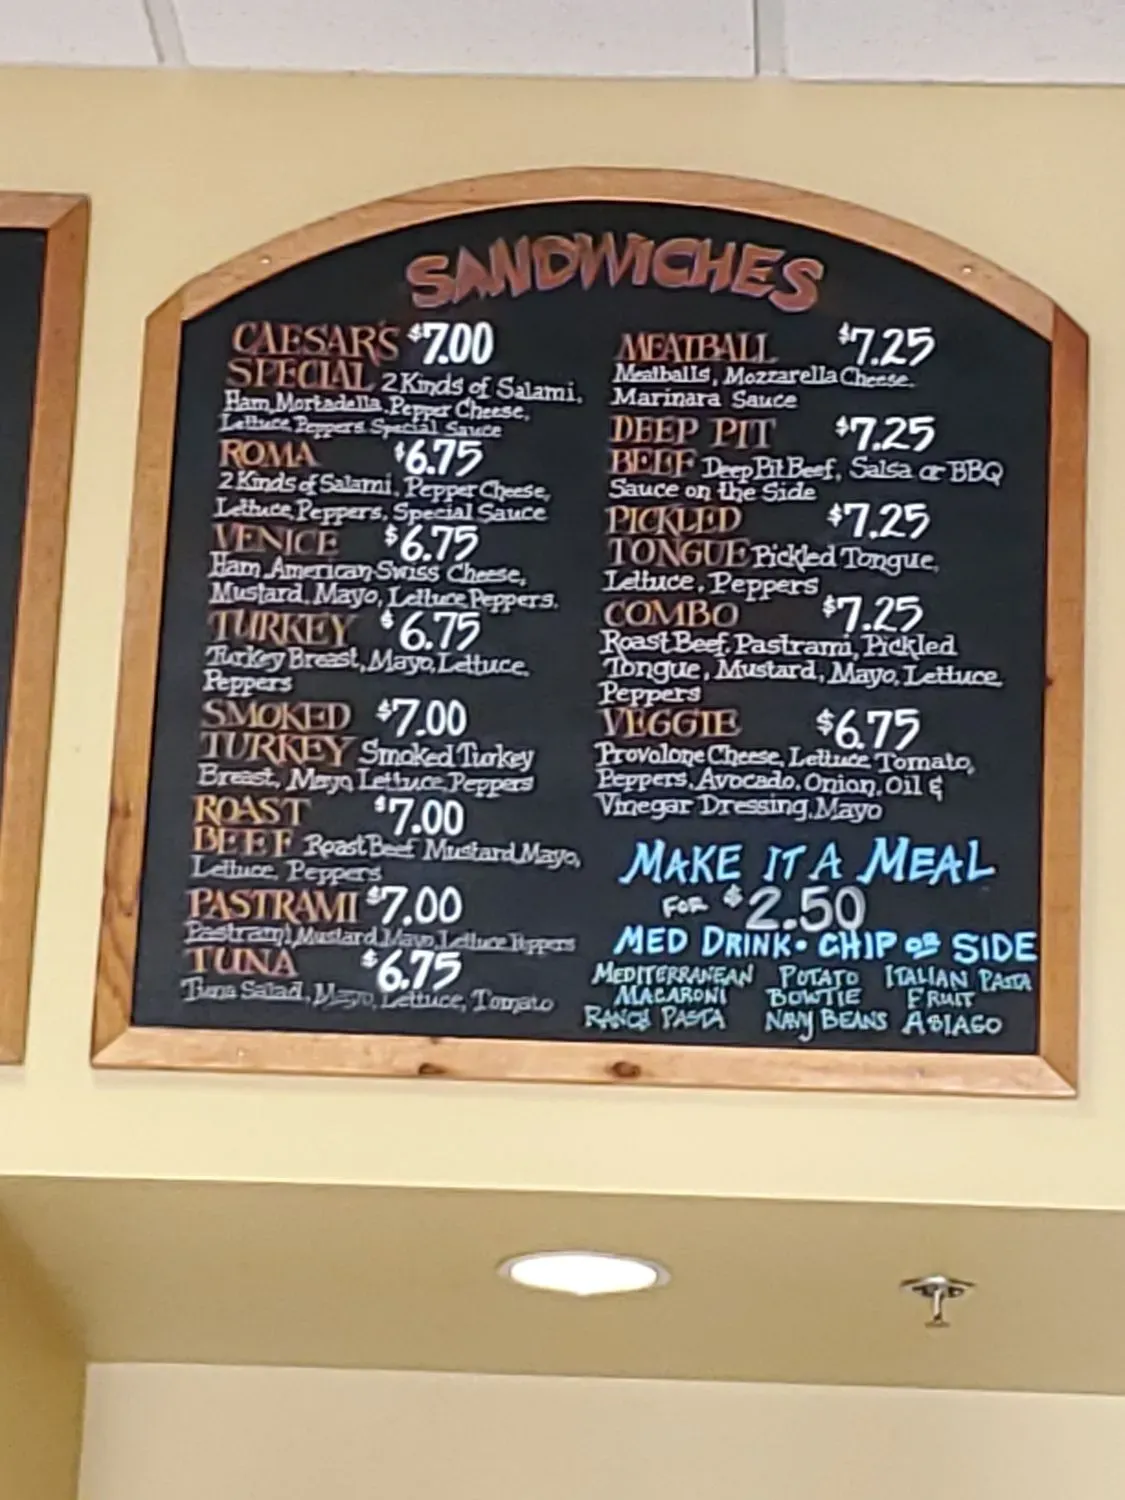 SANDWICHES
CAESAR'S $7.00
SPECIAL 2 Kinds of Salami,
Ham, Mortadella, Pepper Cheese,
Lettuce, Peppers, Special Sauce
ROMA $6.75
2 Kinds of Salami, Pepper Cheese,
Lettuce, Peppers, Special Sauce
VENICE $6.75
Ham, American-Swiss Cheese,
Mustard, Mayo, Lettuce, Peppers.
TURKEY $6.75
Turkey Breast, Mayo, Lettuce,
Peppers
SMOKED $7.00
TURKEY Smoked Turkey
Breast, Mayo, Lettuce, Peppers
ROAST $7.00
BEEF Roast Beef, Mustard, Mayo,
Lettuce, Peppers
PASTRAMI $7.00
Pastrami, Mustard, Mayo, Lettuce, Peppers
TUNA $6.75
Tuna Salad, Mayo, Lettuce, Tomato
MEATBALL $7.25
Meatballs, Mozzarella Cheese,
Marinara Sauce
DEEP PIT $7.25
BEEF Deep Pit Beef, Salsa or BBQ
Sauce on the Side
PICKLED $7.25
TONGUE Pickled Tongue,
Lettuce, Peppers
COMBO $7.25
Roast Beef, Pastrami, Pickled
Tongue, Mustard, Mayo, Lettuce
Peppers
VEGGIE $6.75
Provolone Cheese, Lettuce, Tomato,
Peppers, Avocado, Onion, Oil &
Vinegar Dressing, Mayo
MAKE IT A MEAL
FOR $2.50
MED DRINK • CHIP OR SIDE
MEDITERRANEAN POTATO ITALIAN PASTA
MACARONI BOWTIE FRUIT
RANCH PASTA NAVY BEANS ASIAGO